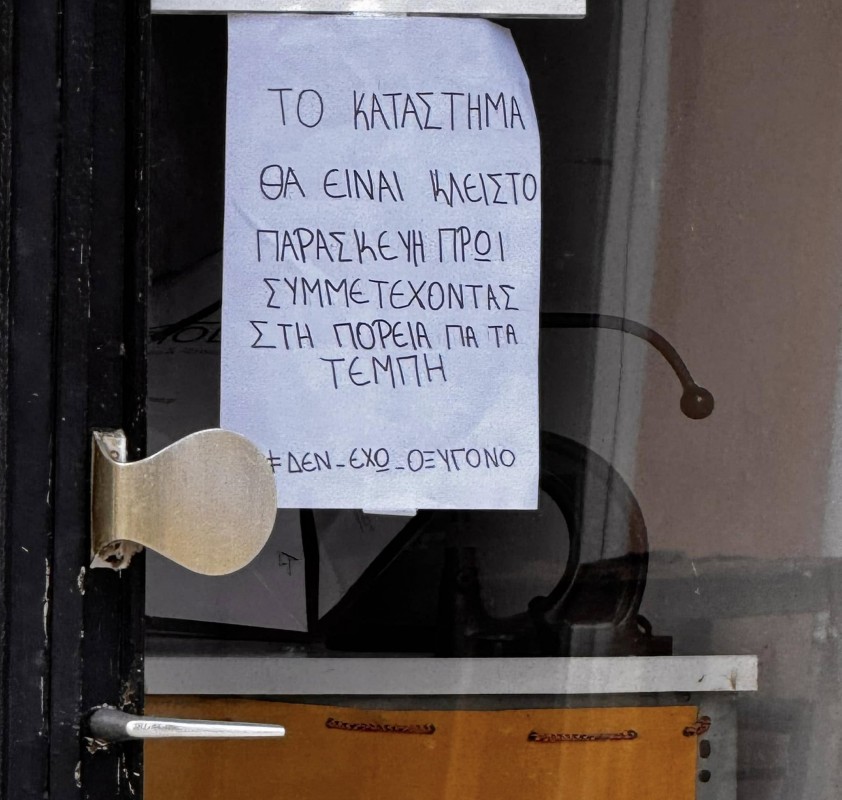 ΤΟ ΚΑΤΑΣΤΗΜΑ
ΘΑ ΕΙΝΑΙ ΚΛΕΙΣΤΟ
ΠΑΡΑΣΚΕΥΗ ΠΡΩΙ
ΣΥΜΜΕΤΕΧΟΝΤΑΣ
ΣΤΗ ΠΟΡΕΙΑ ΓΙΑ ΤΑ
ΤΕΜΠΗ
#ΔΕΝ_ΕΧΩ_ΟΞΥΓΟΝΟ